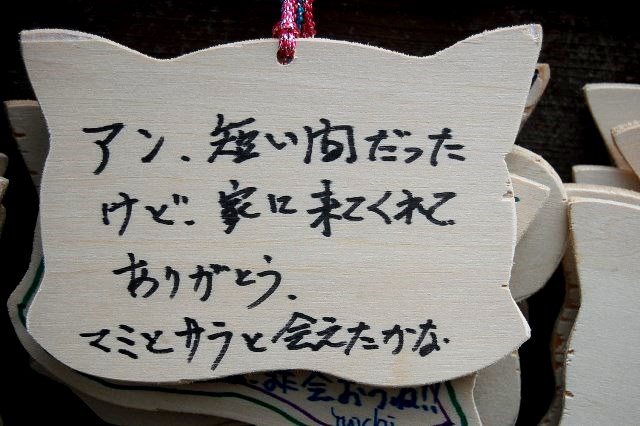 アン、短い間だった
けど、家に来てくれて
ありがとう、
マミとサラと会えたかな。
会おうね!!